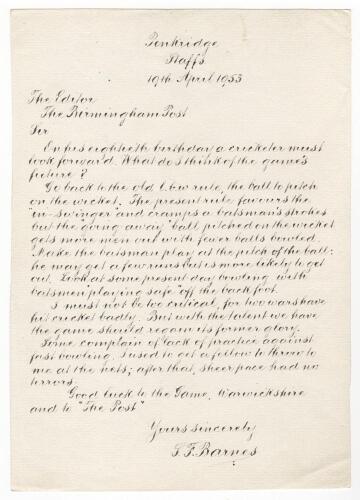 Penkridge
Staffs
19th April 1953
The Editor
The Birmingham Post
Sir
On his eightieth birthday a cricketer must
look forward. What do I think of the game's
future?
Go back to the old l.b.w rule, the ball to pitch
on the wicket. The present rule favours the
"in-swinger and cramps a batsman's strokes
but the going away" ball pitched on the wicket
gets more men out with fewer balls bowled.
Make the batsman play at the pitch of the ball:
he may get a few runs but is more likely to get
out. Look at some present day bowling with
batsmen playing safe "off the back foot.
I must not be too critical, for two wars have
hit cricket badly. But with the talent we have
the game should regain its former glory.
Some complain of lack of practice against
fast bowling. I used to get a fellow to throw to
me at the nets; after that, sheer pace had no
terrors.
Good luck to the Game, Warwickshire
and to "The Post"
Yours sincerely
S.F. Barnes